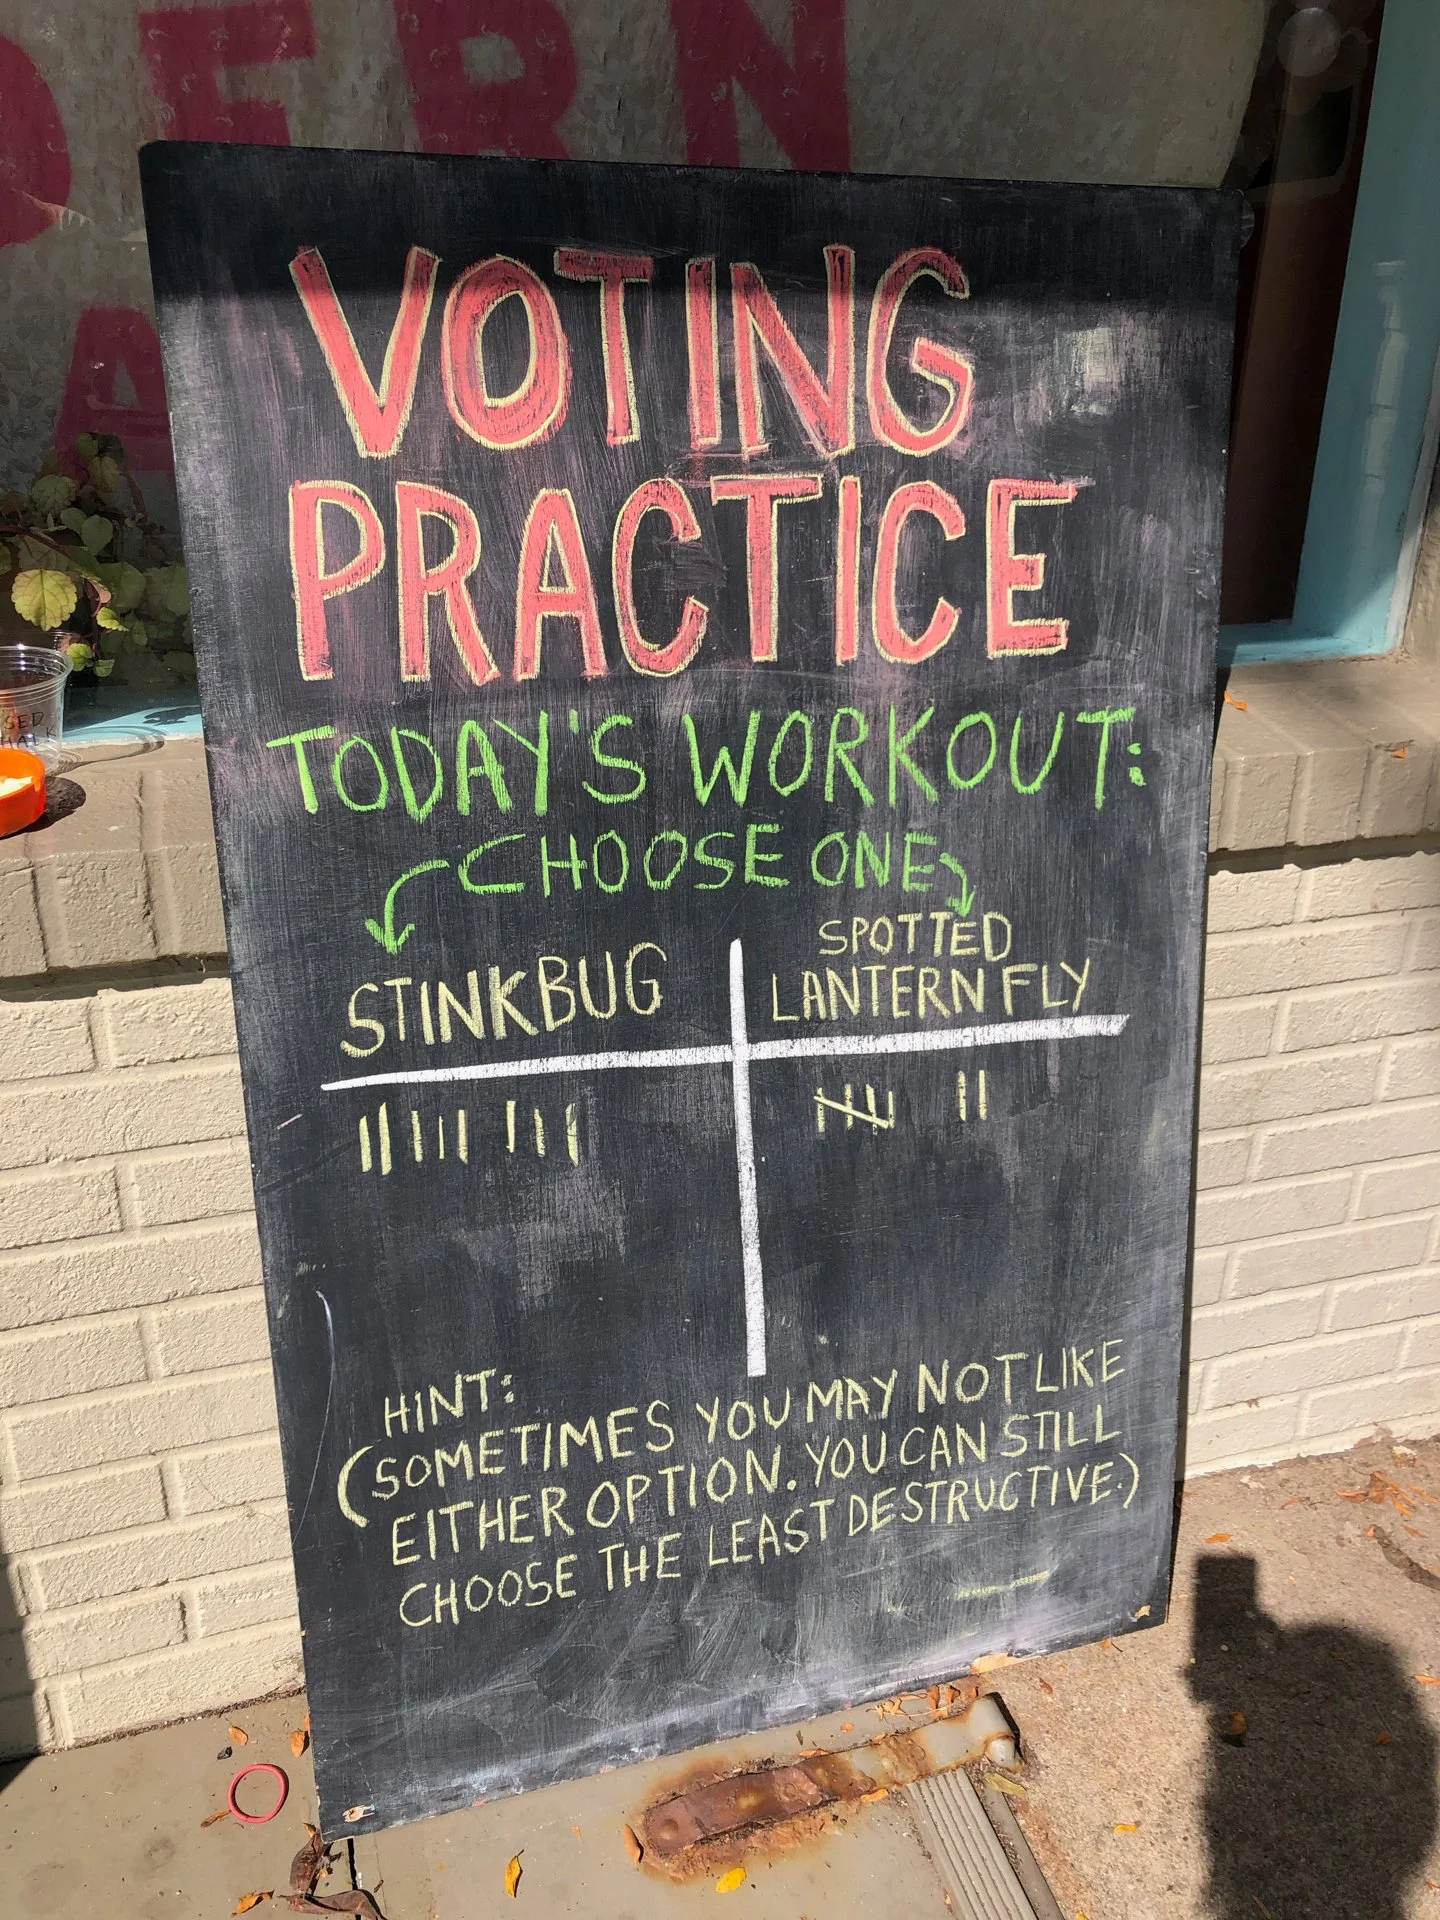 DERN
A
VOTING
PRACTICE
TODAY'S WORKOUT:
CHOOSE ONE
STINKBUG
SPOTTED
LANTERN FLY
HINT:
(SOMETIMES YOU MAY NOT LIKE
EITHER OPTION. YOU CAN STILL
CHOOSE THE LEAST DESTRUCTIVE.)